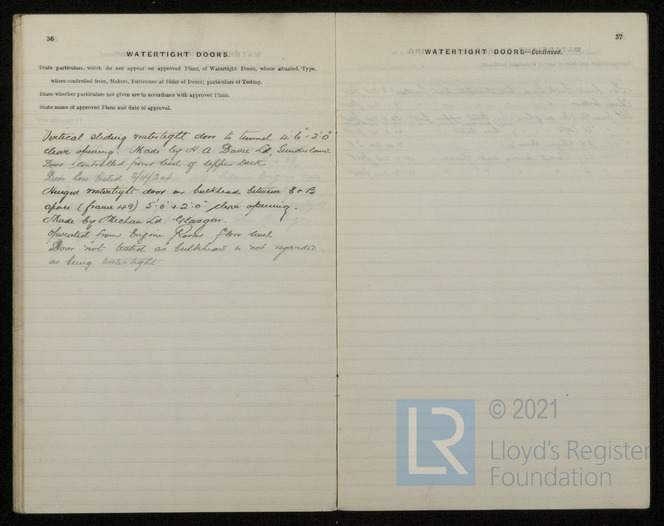 36
WATERTIGHT DOORS.
State particulars, which do not appear on approved Plans, of Watertight Doors, where situated, Type,
where controlled from, Makers, thicknesses at Sides of Doors, particulars of Testing.
State whether particulars not given are in accordance with approved Plans.
State name of approved Plans and date of approval.
Vertical sliding watertight door to tunnel 4'6" × 2'0"
clear opening. Made by H. A. Ld, Sunderland
Door controlled from level of upper deck
Door hose tested 7/11/24
Hinged watertight door on bulkhead between E & B
space (frame 49) 5'0" × 2'0" clear opening.
Made by Mechan Ld. Glasgow
operated from Engine Room floor level
Door not tested as bulkhead is not regarded
as being watertight
37
WATERTIGHT DOORS—Continued.
LR
© 2021
Lloyd's Register
Foundation